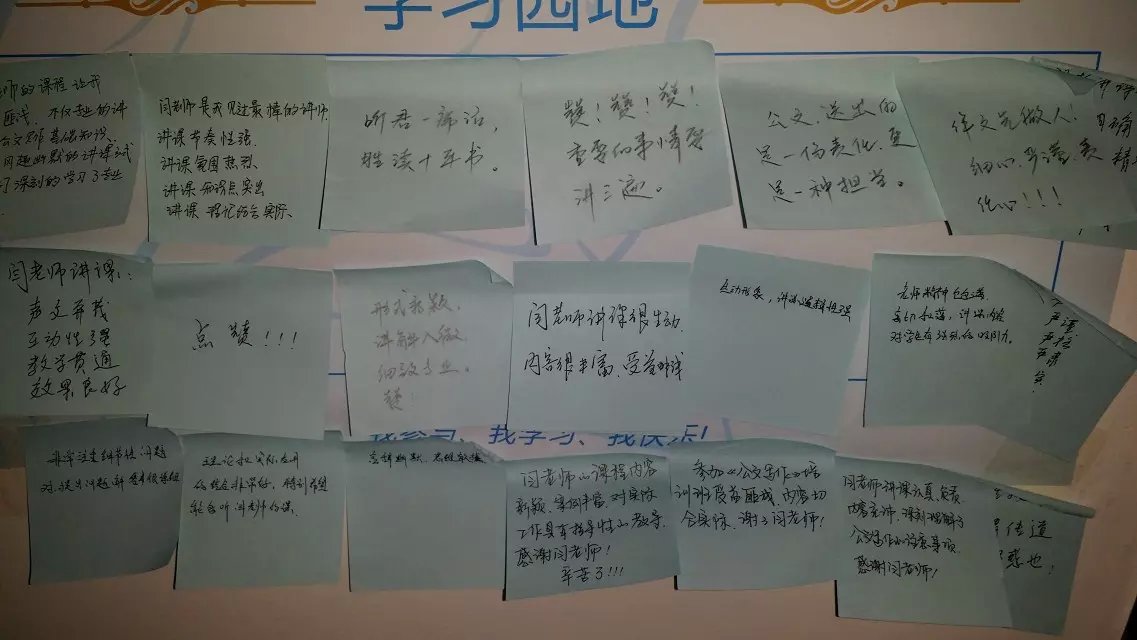 学习园地
师的课程让我
匪浅，不仅
公文写作基础知识、
问题幽默的讲课
深刻的学习了
闫老师是我见过最棒的讲师
讲课节奏性强
讲课氛围热烈
讲课 突出
讲课 结合实际
听君一席话，
胜读十年书。
赞！赞！赞！
重要的事情要
讲三遍。
公文，送出的
是一份文化，更
是一种担当。
作文先做人！
细心、
闫老师讲课：
声文并茂
互动性强
教学贯通
效果良好
点赞！！！
形式新颖，
讲解入微
细致专业。
赞！
闫老师讲课很生动，
内容很丰富、受益匪浅
生动形象，讲课逻辑性强
老师精神饱满、
对学生有强烈的吸引力。
非常注重细节性问题
理论和实际应用
的结合非常好，特别希望
能多听闫老师的课。
言辞幽默、思维敏捷
闫老师的课程内容
新颖、案例丰富、对实际
工作具有指导性的教导
感谢闫老师！
辛苦了！！！
参加《公文写作》培
训班受益匪浅，内容切
合实际，谢谢闫老师！
闫老师讲课认真负责
内容充沛，深刻理解了
公文写作的注意事项
感谢闫老师！
传道
惑也！
我参与、我学习、我快乐！